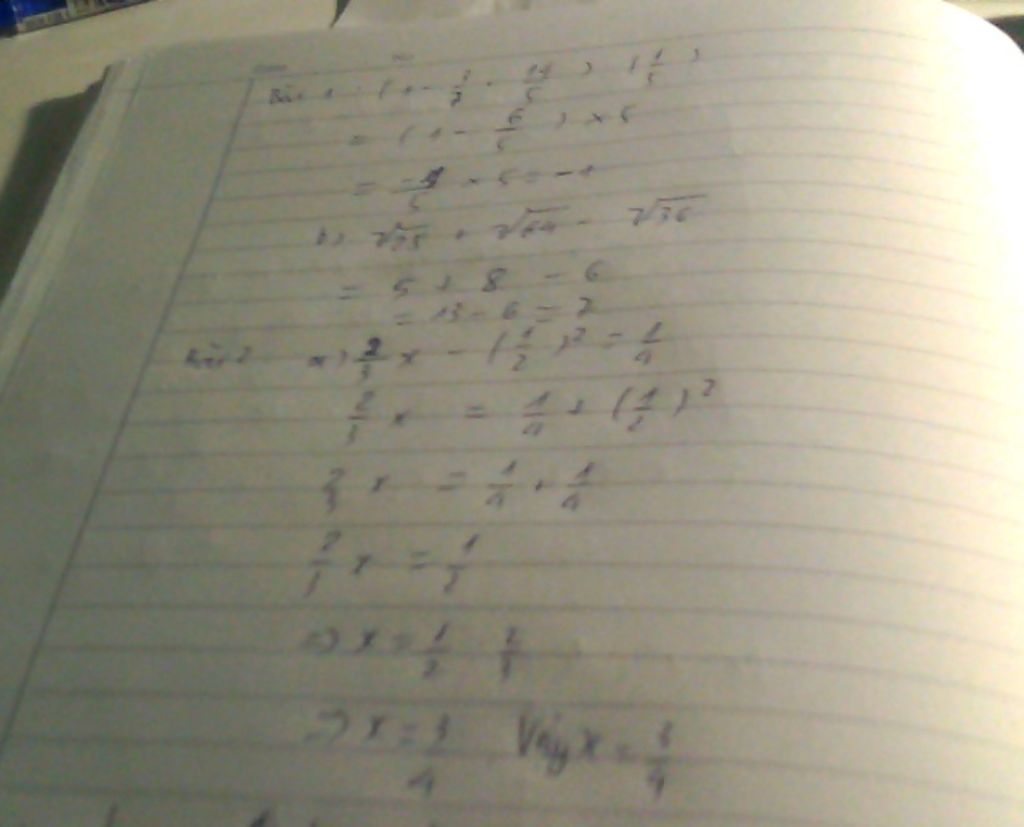 Bài 1 (1 - 3/7 . 14/5) : (1/5)
= (1 - 6/5) × 5
= -1/5 × 5 = -1
b) √25 + √64 - √36
= 5 + 8 - 6
= 13 - 6 = 7
Bài 2 a) 2/3 x - (1/2)² = 1/4
2/3 x = 1/4 + (1/2)²
2/3 x = 1/4 + 1/4
2/3 x = 1/2
=> x = 1/2 : 2/3
=> x = 3/4 Vậy x = 3/4